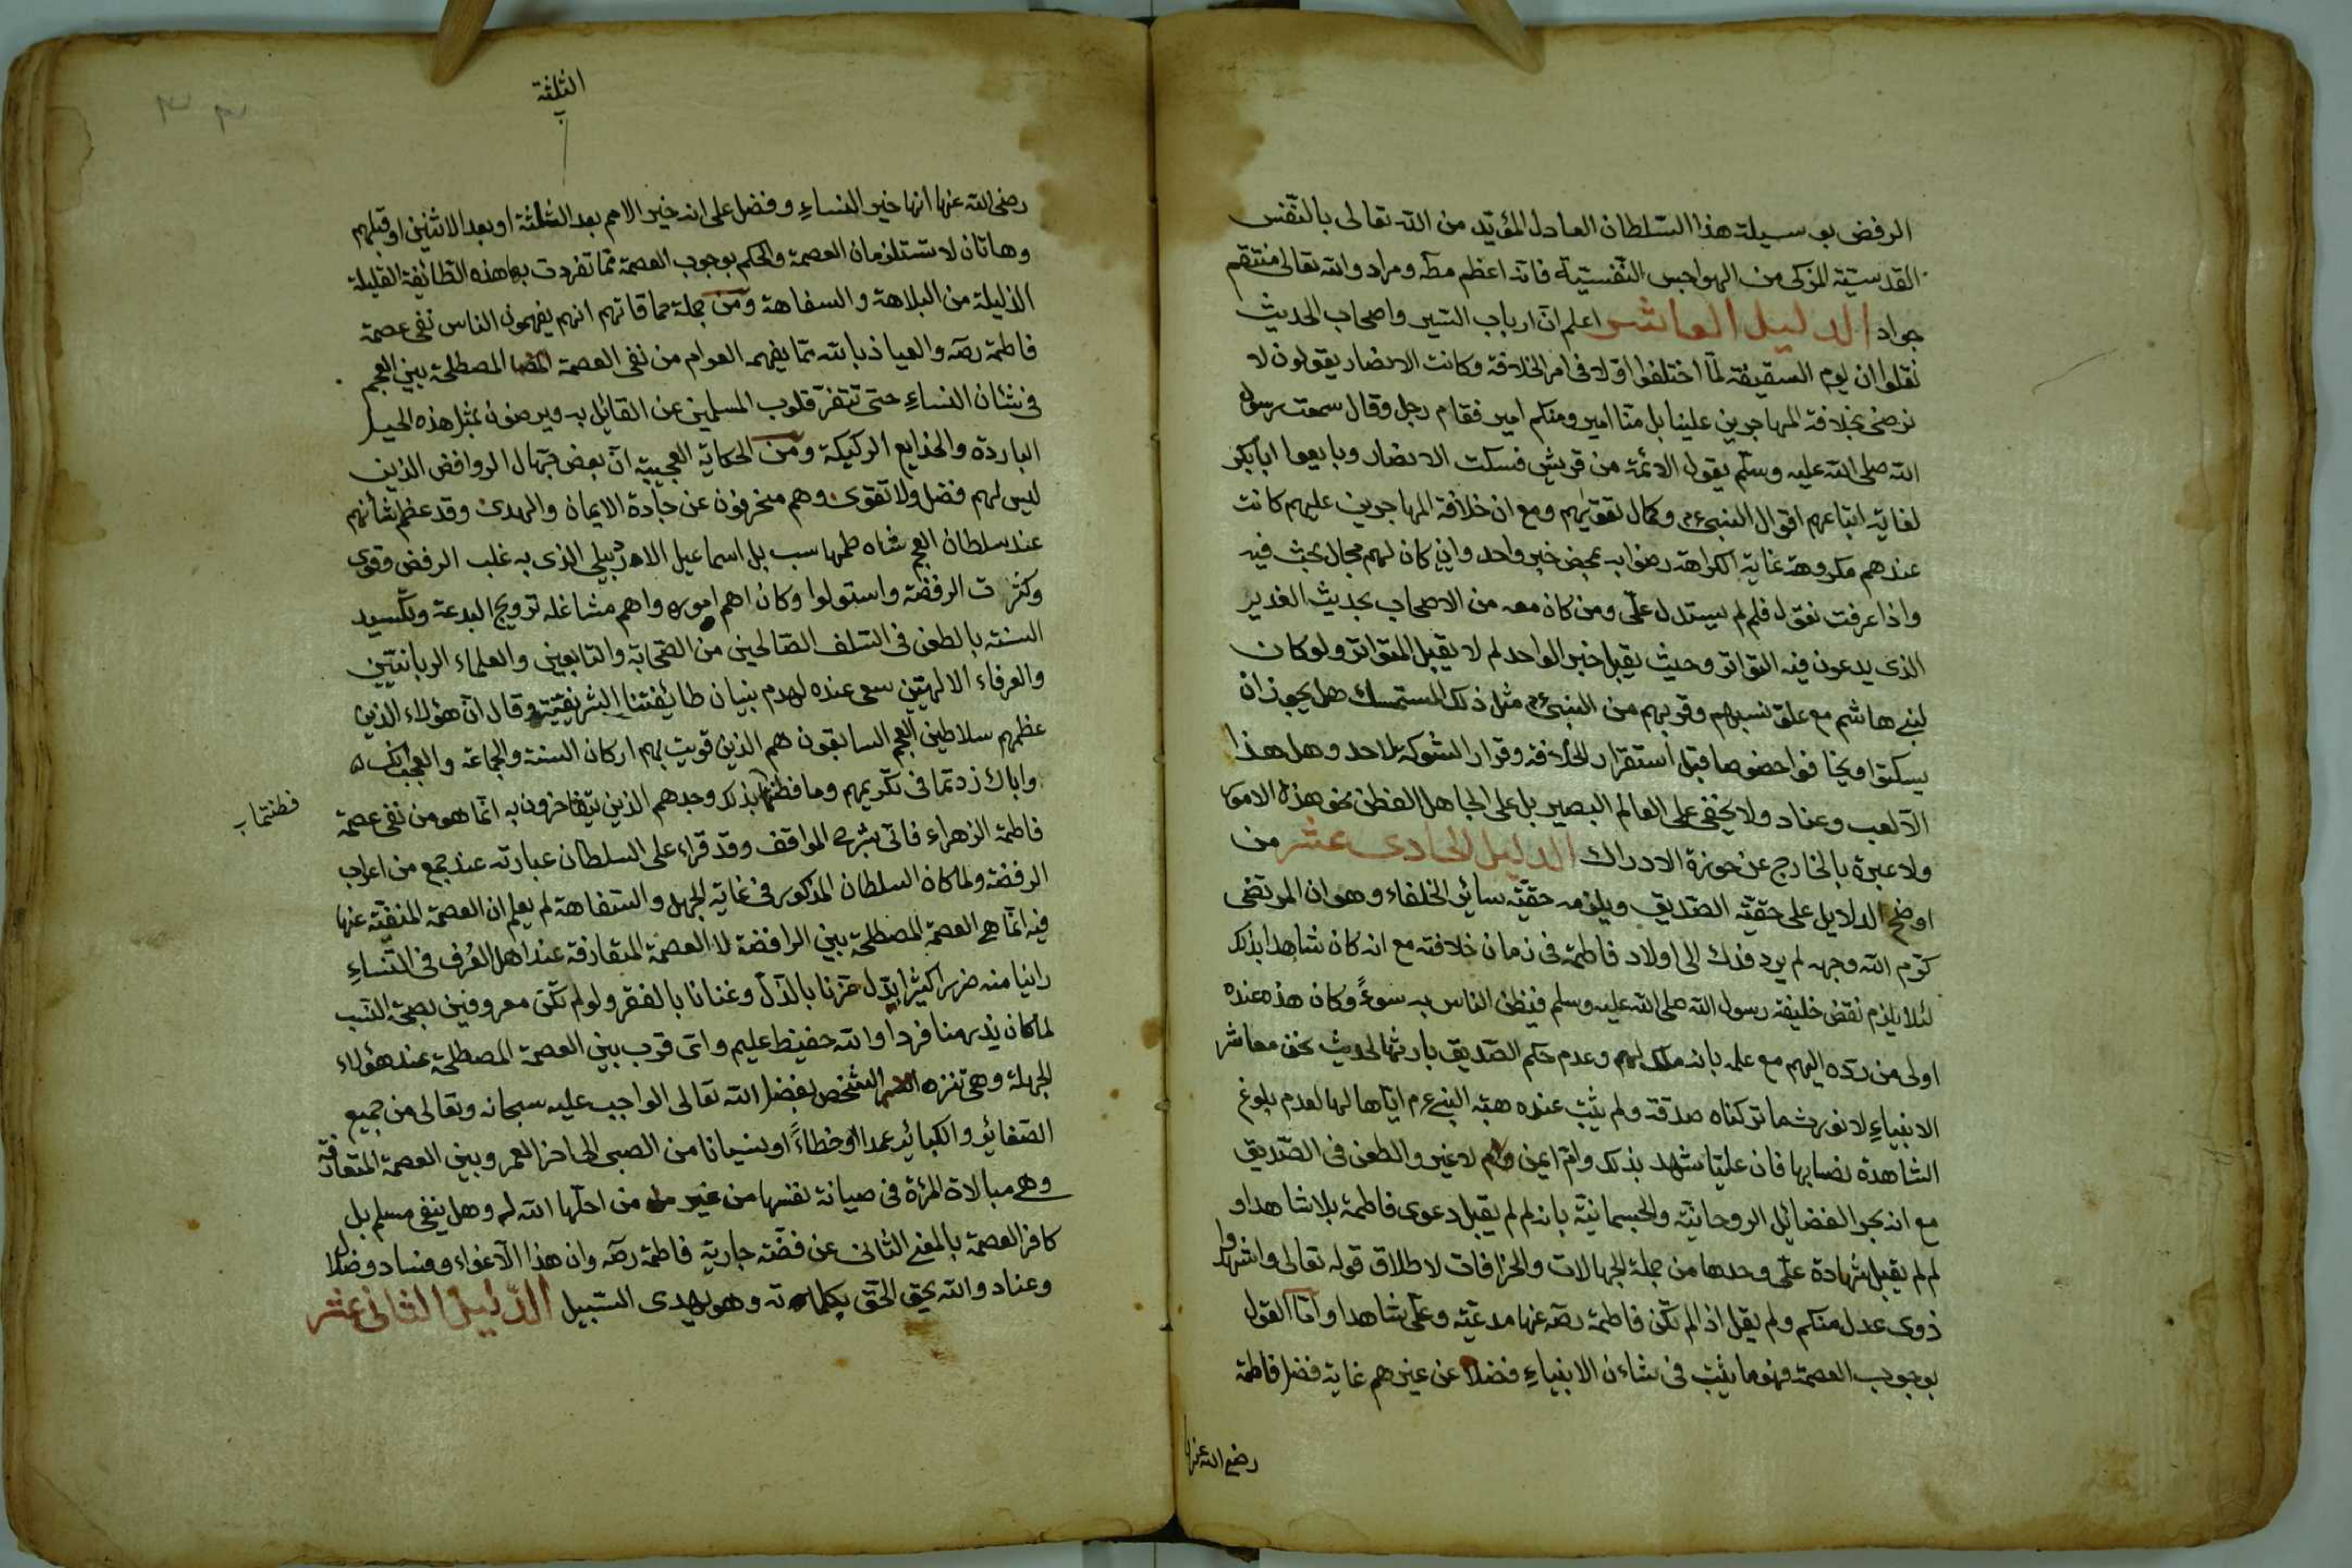 الرفض بوسيلة هذا السّلطان العادل المؤيّد من الله تعالى بالنّفس
القدسيّة المزكى من الهواجس النّفسيّة فانّه اعظم مطّه ومراد والله تعالى منتقم
جواد الدليل العاشر اعلم انّ ارباب السّير واصحاب الحديث
نقلوا ان يوم السقيفة لمّا اختلفوا اوّلا فى امر الخلافة وكانت الانصار يقولون لا
نرضى بخلافة المهاجرين علينا بل منّا امير ومنكم امير فقام رجل وقال سمعت رسول
الله صلى الله عليه وسلّم يقول الائمّة من قريش فسكت الانصار وبايعوا ابابكر
لغاية اتباعهم اقوال النبىء م وكمال تقويهم ومع ان خلافة المهاجرين عليهم كانت
عندهم مكروهة غاية الكراهة رضوا به بمحض خبر واحد وان كان لهم مجال بحث فيه
واذا عرفت نقول فلم لم يستدل علّى ومن كان معه من الاصحاب بحديث الغدير
الذى يدعون فيه التواتر وحيث يقبل خبر الواحد لم لا يقبل المتواتر ولو كان
لبنى هاشم مع علّو نسبهم وقربهم من النبىء م مثل ذلك المستمسك هل يجوز ان
يسكتوا ويخافوا خصوصا قبل استقرار الخلافة وقرار الشوكة لاحد وهل هذا
الّا لعب وعناد ولا يخفى على العالم البصير بل على الجاهل الفطن نحو هذه الامور
ولا عبرة بالخارج عن حوزة الادراك الدليل الحادى عشر من
اوضح الدلايل على حقيّة الصّديق ويلزمه حقيّة سائر الخلفاء وهو ان المرتضى
كرّم الله وجهه لم يرد فدك الى اولاد فاطمة فى زمان خلافته مع انه كان شاهدا بذلك
لئلا يلزم نقض خليفة رسول الله صلى الله عليه وسلم فيظن الناس به سوءً وكان هذه عنده
اولى من ردّه اليهم مع علمه بانه ملك لهم وعدم حكم الصّديق بارثها لحديث نحن معاشر
الانبياءِ لا نورث ما تركناه صدقة ولم يثبت عنده هبة النبى ع م ايّاها لها لعدم بلوغ
الشاهدة نصابها فان عليّا شهد بذلك وامّ ايمن لا غير والطعن فى الصّديق
مع انه بحر الفضائل الروحانيّة والجسمانيّة بانه لم لم يقبل دعوى فاطمة بلا شاهد او
لم لم يقبل شهادة علّى وحدها من جملة الجهالات والخرافات لاطلاق قوله تعالى واشهدوا
ذوى عدل منكم ولم يقل اذا لم تكن فاطمة رضه عنها مدعيّة وعلّى شاهدا وامّا القول
بوجوب العصمة فهو ما يثبت فى شاءن الانبياءِ فضلا عن غيرهم غاية فضل فاطمة
رضى الله عنها
الثلثة
رضى الله عنها انها خير النساءِ وفضل على انه خير الامم بعد الثلثة او بعد الاثنين او قبلهم
وهاتان لا تستلزمان العصمة والحكم بوجوب العصمة ممّا تفردت بها هذه الطّائفة القليلة
الذليلة من البلاهة والسفاهة ومن جملة حماقاتهم انهم يفهمون الناس نفى عصمة
فاطمة رضه والعياذ بالله ممّا يفهمه العوام من نفى العصمة المصطلحة بين العجم
فى شان النساءِ حتى تتنفرّ قلوب المسلمين عن القائل به ويرضون بمثل هذه الحيل
الباردة والخدايع الركيكة ومن الحكاية العجيبة انّ بعض جهال الروافض الذين
ليس لهم فضل ولا تقوى وهم منحرفون عن جادة الايمان والهدى وقد عظم شأنهم
عند سلطان العجم شاه طهماسب بل اسماعيل الاردبيلى الذى به غلب الرفض وقوى
وكثرت الرفضة واستولوا وكان اهم اموره واهم مشاغله ترويج البدعة وتكسيد
السنة بالطعن فى السّلف الصّالحين من الصّحابة والتابعين والعلماء الربانيّين
والعرفاء الالهيّين سعى عنده لهدم بنيان طائفتنا الشريفيّة وقال انّ هؤلاء الذين
عظمهم سلاطين العجم السابقون هم الذين قويت بهم اركان السنة والجماعة والعجب انك
واباك زدتما فى تكريمهم وما فطنتما بذلك وجدهم الذين يتفاخرون به انّما هو من نفى عصمة
فطنتما ب
فاطمة الزهراء فاتى بشرح المواقف وقد قراء على السلطان عبارته عند جمع من اعراب
الرفضة ولما كان السلطان المذكور فى غاية الجهل والسّفاهة لم يعلم ان العصمة المنفيّة عنها
فيه انّما هى العصمة المصطلحة بين الرافضة لا العصمة المتعارفة عند اهل العُرف فى النّساءِ
راينا منه ضررا كثيرا بدّل عزّنا بالذّل وغنانا بالفقر ولو لم نكن معروفين بصحّة النّسب
لما كان يذر منا فردا والله حفيظ عليم واىّ قرب بين العصمة المصطلحة عند هؤلاء
الجهلة وهى تنزه الشخص بفضل الله تعالى الواجب عليه سبحانه وتعالى من جميع
الصّغائر والكبائر عمدا او خطاءً او نسيانا من الصبى الى اخر العمر وبين العصمة المتعارفة
وهى مبالاة المرءة فى صيانة نفسها من غير من احلّها الله له وهل ينفى مسلم بل
كافر العصمة بالمعنى الثانى عن فضّة جارية فاطمة رضه وان هذا الّا غواء وفساد وضلال
وعناد والله يحق الحقّ بكلماته وهو يهدى السّبيل الدّليل الثانى عشر